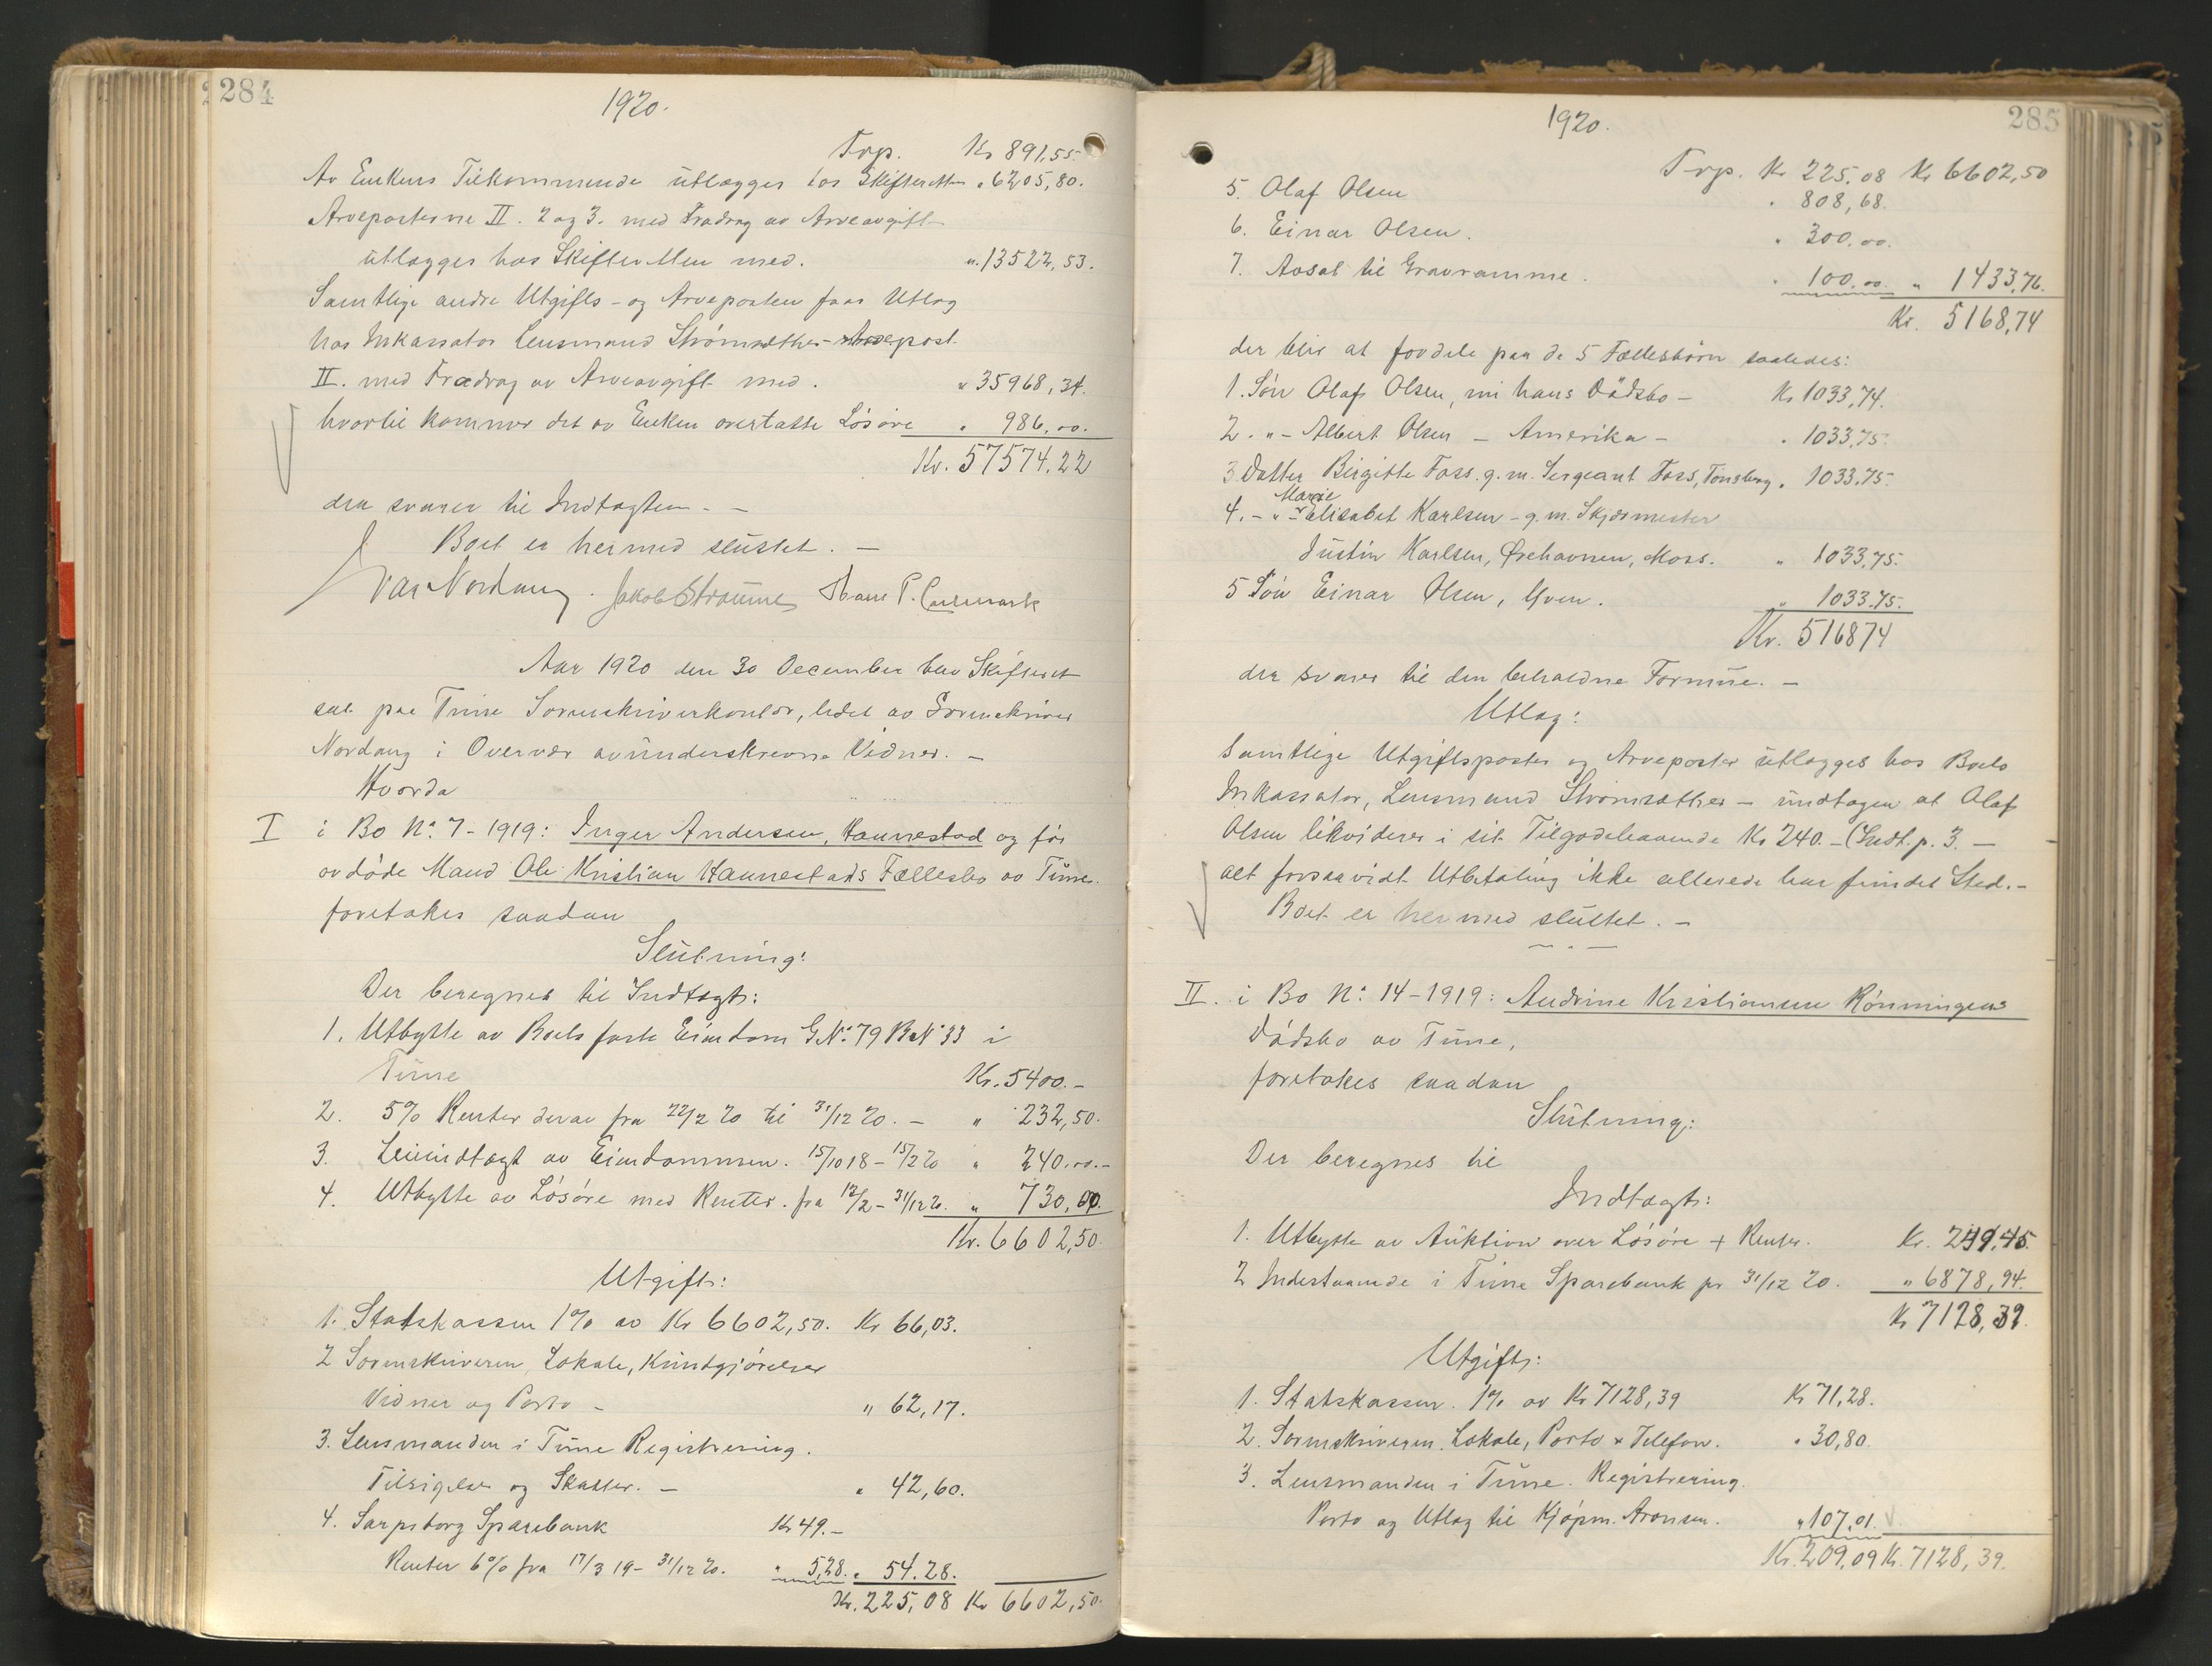 284
1920.
Trp. Kr 891,55.
Av Enkens Tilkommende utlægges hos Skifteretten " 6205,80.
Arveposterne II. 2 og 3. med Fradrag av Arveavgift
utlægges hos Skifteretten med. " 13522,53.
Samtlige andre Utgifts- og Arveposter faar Utlæg
hos Inkassator Lensmand Strømsæther - Arvepost
II. med Fradrag av Arveavgift med. " 35968,34.
hvortil kommer det av Enken overtatte Løsøre " 986,00.
Kr. 57574,22
der svarer til Indtægten. -
Boet er hermed sluttet. -
Nordang. Jakob Straume
Aar 1920 den 30 December blev Skifteret
sat paa Tune Sorenskriverkontor, ledet av Sorenskriver
Nordang i Overvær av underskrevne Vidner. -
Hvorda
I i Bo No. 7-1919: Inger Andersen, Hannestad og før
avdøde Mand Ole Kristian Hannestads Fællesbo av Tune.
foretokes saadan
Slutning:
Der beregnes til Indtægt:
1. Utbytte av Boets faste Eiendom G.No. 79 B.No 33 i
Tune Kr. 5400.-
2. 5% Renter derav fra 22/2 20 til 31/12 20. - " 232,50.
3. Leieindtægt av Eiendommen. 15/10 18 - 15/2 20 " 240.00.-
4. Utbytte av Løsøre med Renter. fra 12/2 - 31/12 20. " 730,00.
Kr. 6602,50.
Utgift:
1. Statskassen 1% av Kr 6602,50. Kr 66,03.
2 Sorenskriveren, Lokale, Kundgjørelser
Vidner og Porto - " 62,17.
3. Lensmanden i Tune Registrering.
Tilsigelse og Skatter. - " 42,60.
4. Sarpsborg Sparebank Kr 49.-
Renter 6% fra 17/3 19 - 31/12 20. " 5,28. " 54.28.
Kr. 225,08 Kr 6602,50.
285
1920.
Trp. Kr 225.08 Kr 6602,50
5. Olaf Olsen " 808,68.
6. Einar Olsen. " 300.00.
7. Avsat til Gravramme. " 100.00. " 1433,76.
Kr. 5168,74
der blir at fordele paa de 5 Fællesbørn saaledes:
1. Søn Olaf Olsen, nu hans Dødsbo - Kr 1033,74.
2. " - Albert Olsen - Amerika - " 1033,75.
3. Datter Birgitte Foss. g.m. Sergeant Foss, Tønsberg " 1033.75.
4. - " - Marie Elisabet Karlsen - g.m. Skjærmester
Justin Karlsen, Ørehavnen, Moss. " 1033,75.
5 Søn Einar Olsen, Yven. " 1033.75.
Kr. 516874
der svarer til den beholdne Formue. -
Utlæg:
Samtlige Utgiftsposter og Arveposter utlægges hos Boets
Inkassator, Lensmand Strømsæther - undtagen at Olaf
Olsen likviderer i sit Tilgodehavende Kr 240.- (Indt. p. 3. -
alt forsaavidt Utbetaling ikke allerede har fundet Sted. -
Boet er hermed sluttet. -
II. i Bo No. 14-1919: Andrine Kristiansen Rønningens
Dødsbo av Tune,
foretokes saadan
Slutning:
Der beregnes til
Indtægt:
1. Utbytte av Auktion over Løsøre + Renter. Kr. 249,45.
2 Indestaaende i Tune Sparebank pr 31/12 20. " 6878,94.
Kr 7128,39.
Utgift:
1. Statskassen. 1% av Kr 7128,39 Kr 71,28.
2. Sorenskriveren. Lokale, Porto + Telefon. " 30,80.
3. Lensmanden i Tune. Registrering.
Porto og Utlæg til Kjøpm. Aronsen. " 107,01.
Kr. 209,09 Kr. 7128,39.